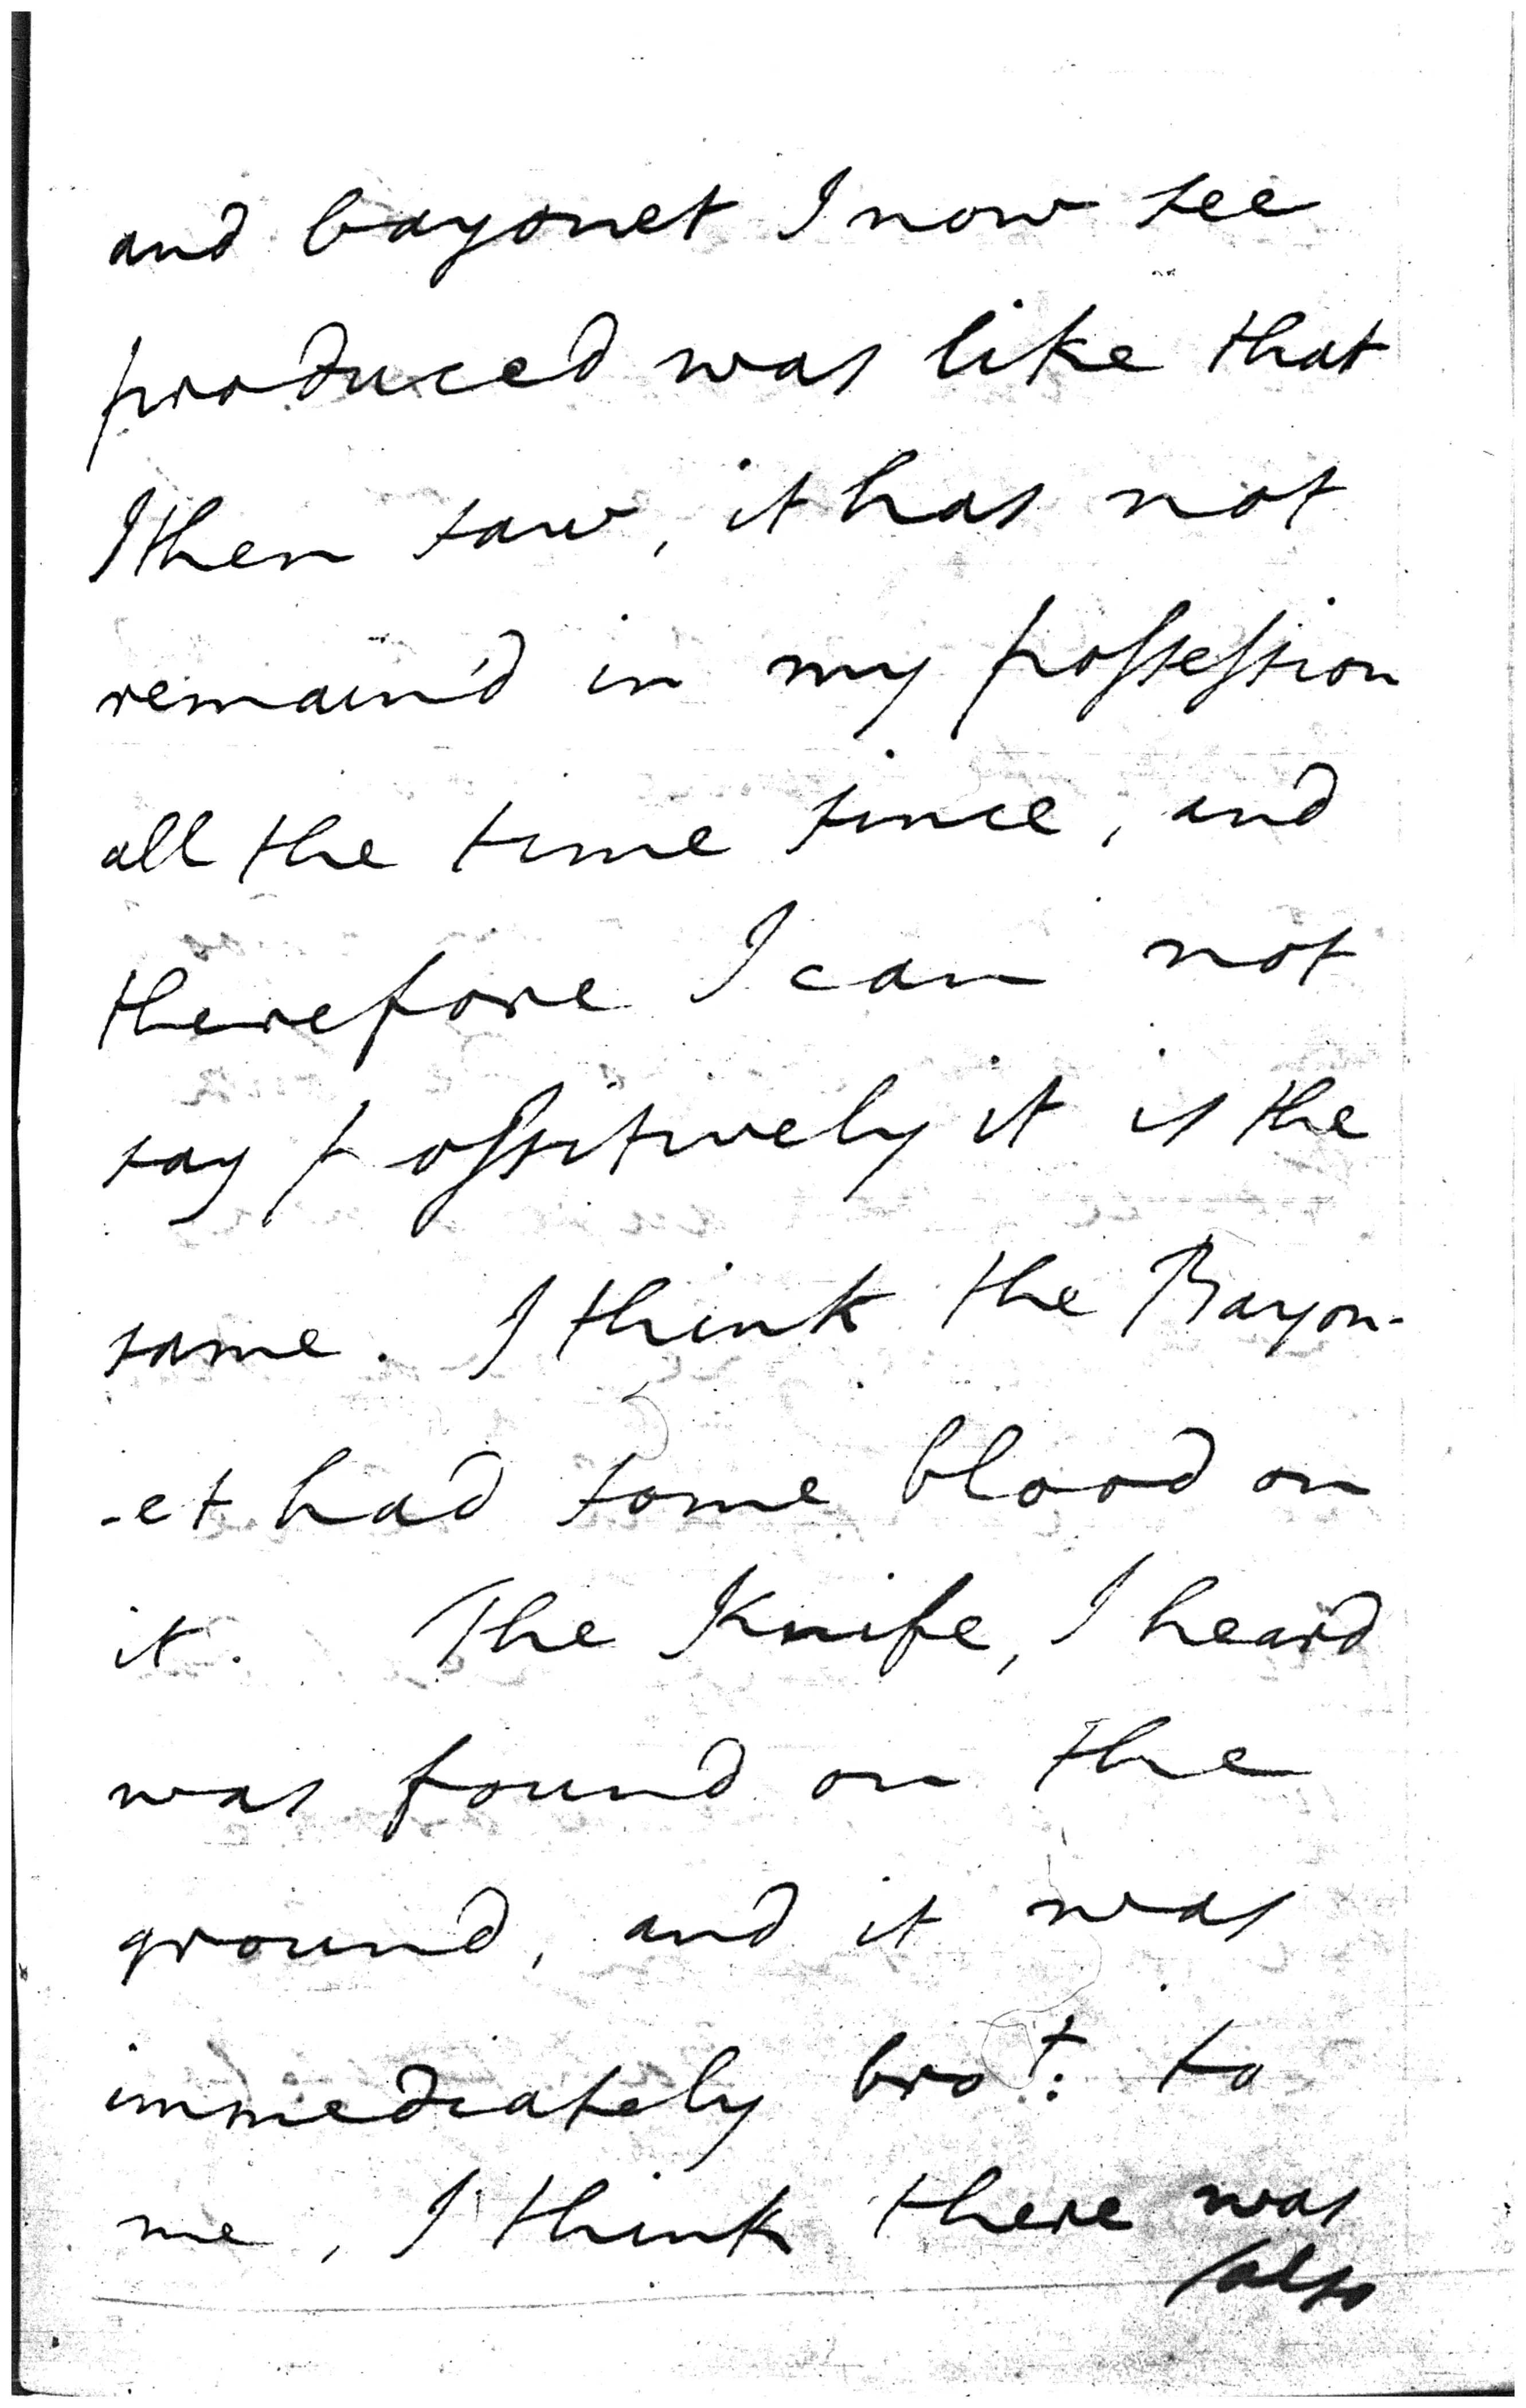 and bayonet I now see
produced was like that
I then saw, it has not
remain'd in my possession
all the time since, and
therefore I can not
say possitively it is the
same. I think the Bayon-
-et had some blood on
it. The Knife, I heard
was found on the
ground, and it was
immediately bro^t: to
me, I think there was
also